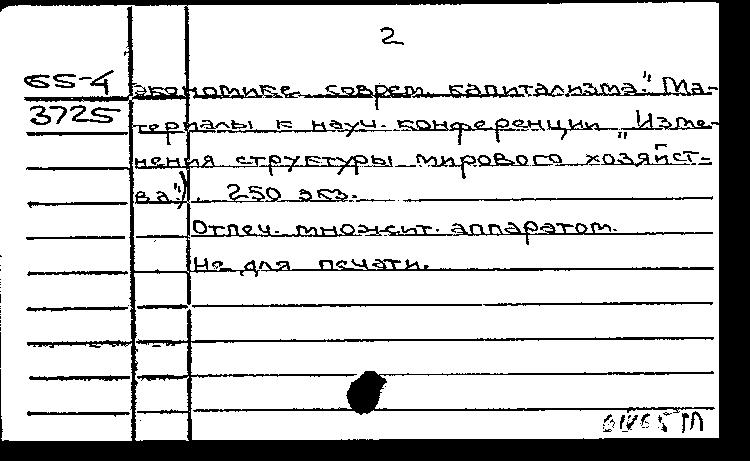 2
65-4 экономике соврем. капитализма." Ма-
3725 териалы к науч. конференции „Изме-
нения структуры мирового хозяйст-
ва"). 250 экз.
Отпеч. множит. аппаратом.
Не для печати.